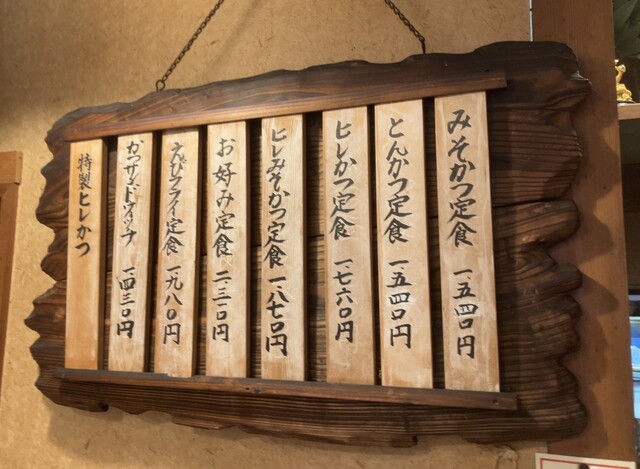 みそかつ定食 一、五四〇円
とんかつ定食 一、五四〇円
ヒレかつ定食 一、七六〇円
ヒレみそかつ定食 一、八七〇円
お好み定食 二、三一〇円
えびフライ定食 一、九八〇円
かつサンドウィッチ 一、四三〇円
特製ヒレかつ